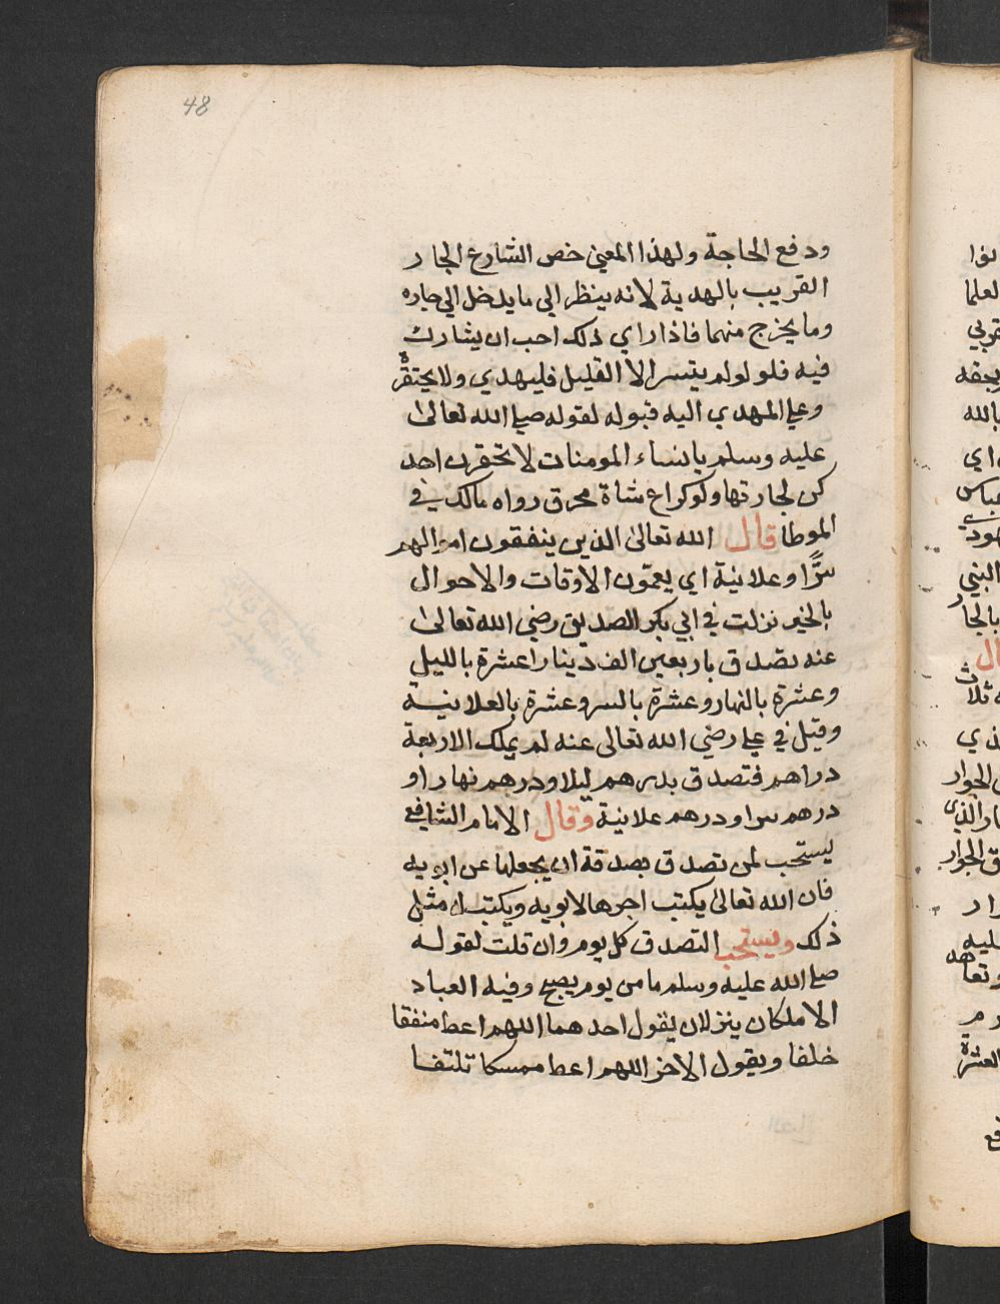 48
ودفع الحاجة ولهذا المعني خص الشارع الجار
القريب بالهدية لانه ينظر الي ما يدخل الي جاره
وما يخرج منهما فاذا راي ذلك احب ان يشارك
فيه فلو لو لم يتسر الا القليل فليهدي ولا يحتقره
وعلي المهدي اليه قبوله لقوله صلي الله تعالىٰ
عليه وسلم يا نساء المومنات لا تحقرن احد
كن لجارتها ولو كراع شاة محرق رواه مالك في
الموطا قال الله تعالىٰ الذين ينفقون اموالهم
سرًّا وعلانية اي يعمّون الاوقات والاحوال
بالخير نزلت في ابي بكر الصديق رضي الله تعالىٰ
عنه تصدق باربعين الف دينارا عشرة بالليل
وعشرة بالنهار وعشرة بالسر وعشرة بالعلانية
وقيل في علي رضي الله تعالى عنه لم يملك الا ربعة
دراهم فتصدق بدرهم ليلا ودرهم نهارا و
درهم سرا ودرهم علانية وقال الامام الشافعي
يستحب لمن تصدق بصدقة ان يجعلها عن ابويه
فان الله تعالىٰ يكتب اجرها لابويه ويكتب له مثل
ذلك ويستحب التصدق كل يوم وان قلت لقوله
صلي الله عليه وسلم ما من يوم يصبح وفيه العباد
الا ملكان ينزلان يقول احدهما اللهم اعط منفقا
خلفا ويقول الاخر اللهم اعط ممسكا تلتفا
لعلما
بحقه
بالله
عباس
النبي
بالجار
ال
ثلاث
الجوار
عليه